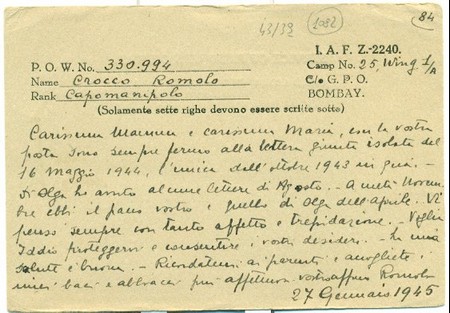 43/39 1082 84
I. A. F. Z.-2240.
P. O. W. No. 330.994
Camp No. 25, Wing 1/A
Name Crocco Romolo
C/o G. P. O.
Rank Capomanipolo
BOMBAY.
(Solamente sette righe devono essere scritte sotto)
Carissima Mamma e carissima Maria, con la vostra
posta sono sempre fermo alla lettera giunta isolata del
16 Maggio 1944, l'unica dall'ottobre 1943 in qua. -
Di Olga ho avuto alcune lettere di Agosto. - A metà Novem-
bre ebbi il pacco vostro e quello di Olga dell'aprile. Vi
penso sempre con tanto affetto e trepidazione. - Voglia
Iddio proteggervi e consentire i vostri desideri. - La mia
salute è buona. - Ricordatemi ai parenti e accogliete i
miei baci e abbracci più affettuosi vostro Romolo
27 Gennaio 1945